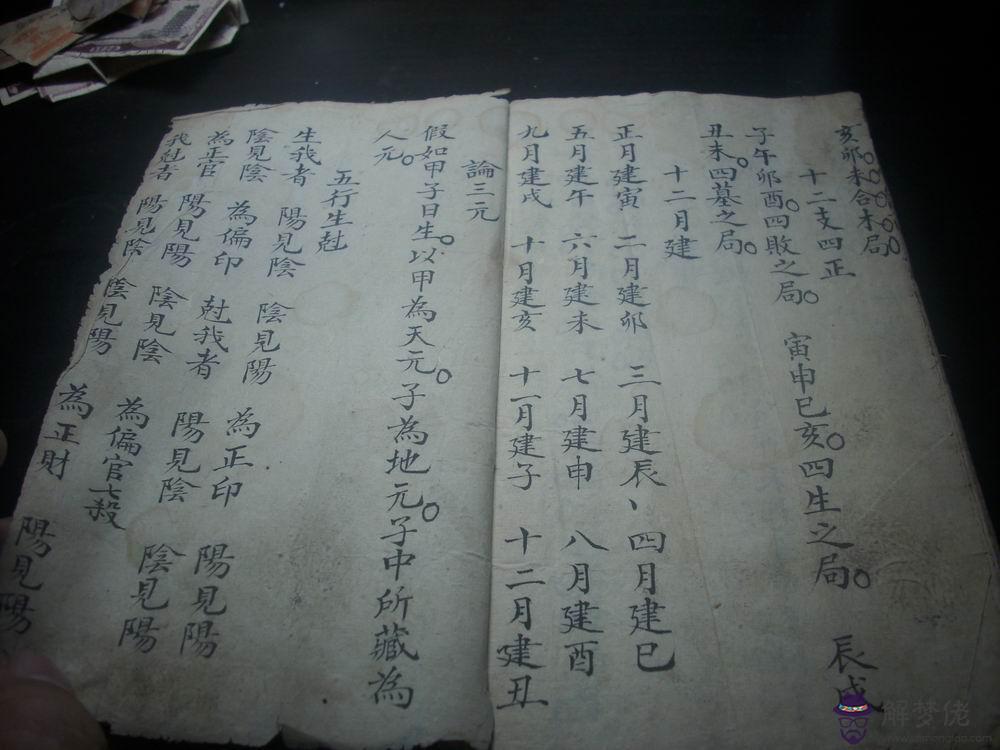 亥卯未合木局
十二支四正
子午卯酉。四敗之局。 寅申巳亥。四生之局。 辰戌
丑未。四墓之局。
十二月建
正月建寅 二月建卯 三月建辰、 四月建巳
五月建午 六月建未 七月建申 八月建酉
九月建戌 十月建亥 十一月建子 十二月建丑
論三元
假如甲子日生。以甲為天元。子為地元。子中所藏為
人元。
五行生尅
生我者 陽見陰 陰見陽 為正印 陽見陽
陰見陰 為偏印 尅我者 陽見陰 陰見陽
為正官 陽見陽 陰見陰 為偏官七殺
我尅者 陽見陰 陰見陽 為正財 陽見陽
解梦佬